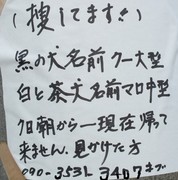 (捜してます!!)
黒の犬名前クー大型
白と茶犬名前マロ中型
9日朝から一現在帰って
来ません.見かけた方
090-3531-3407キブ